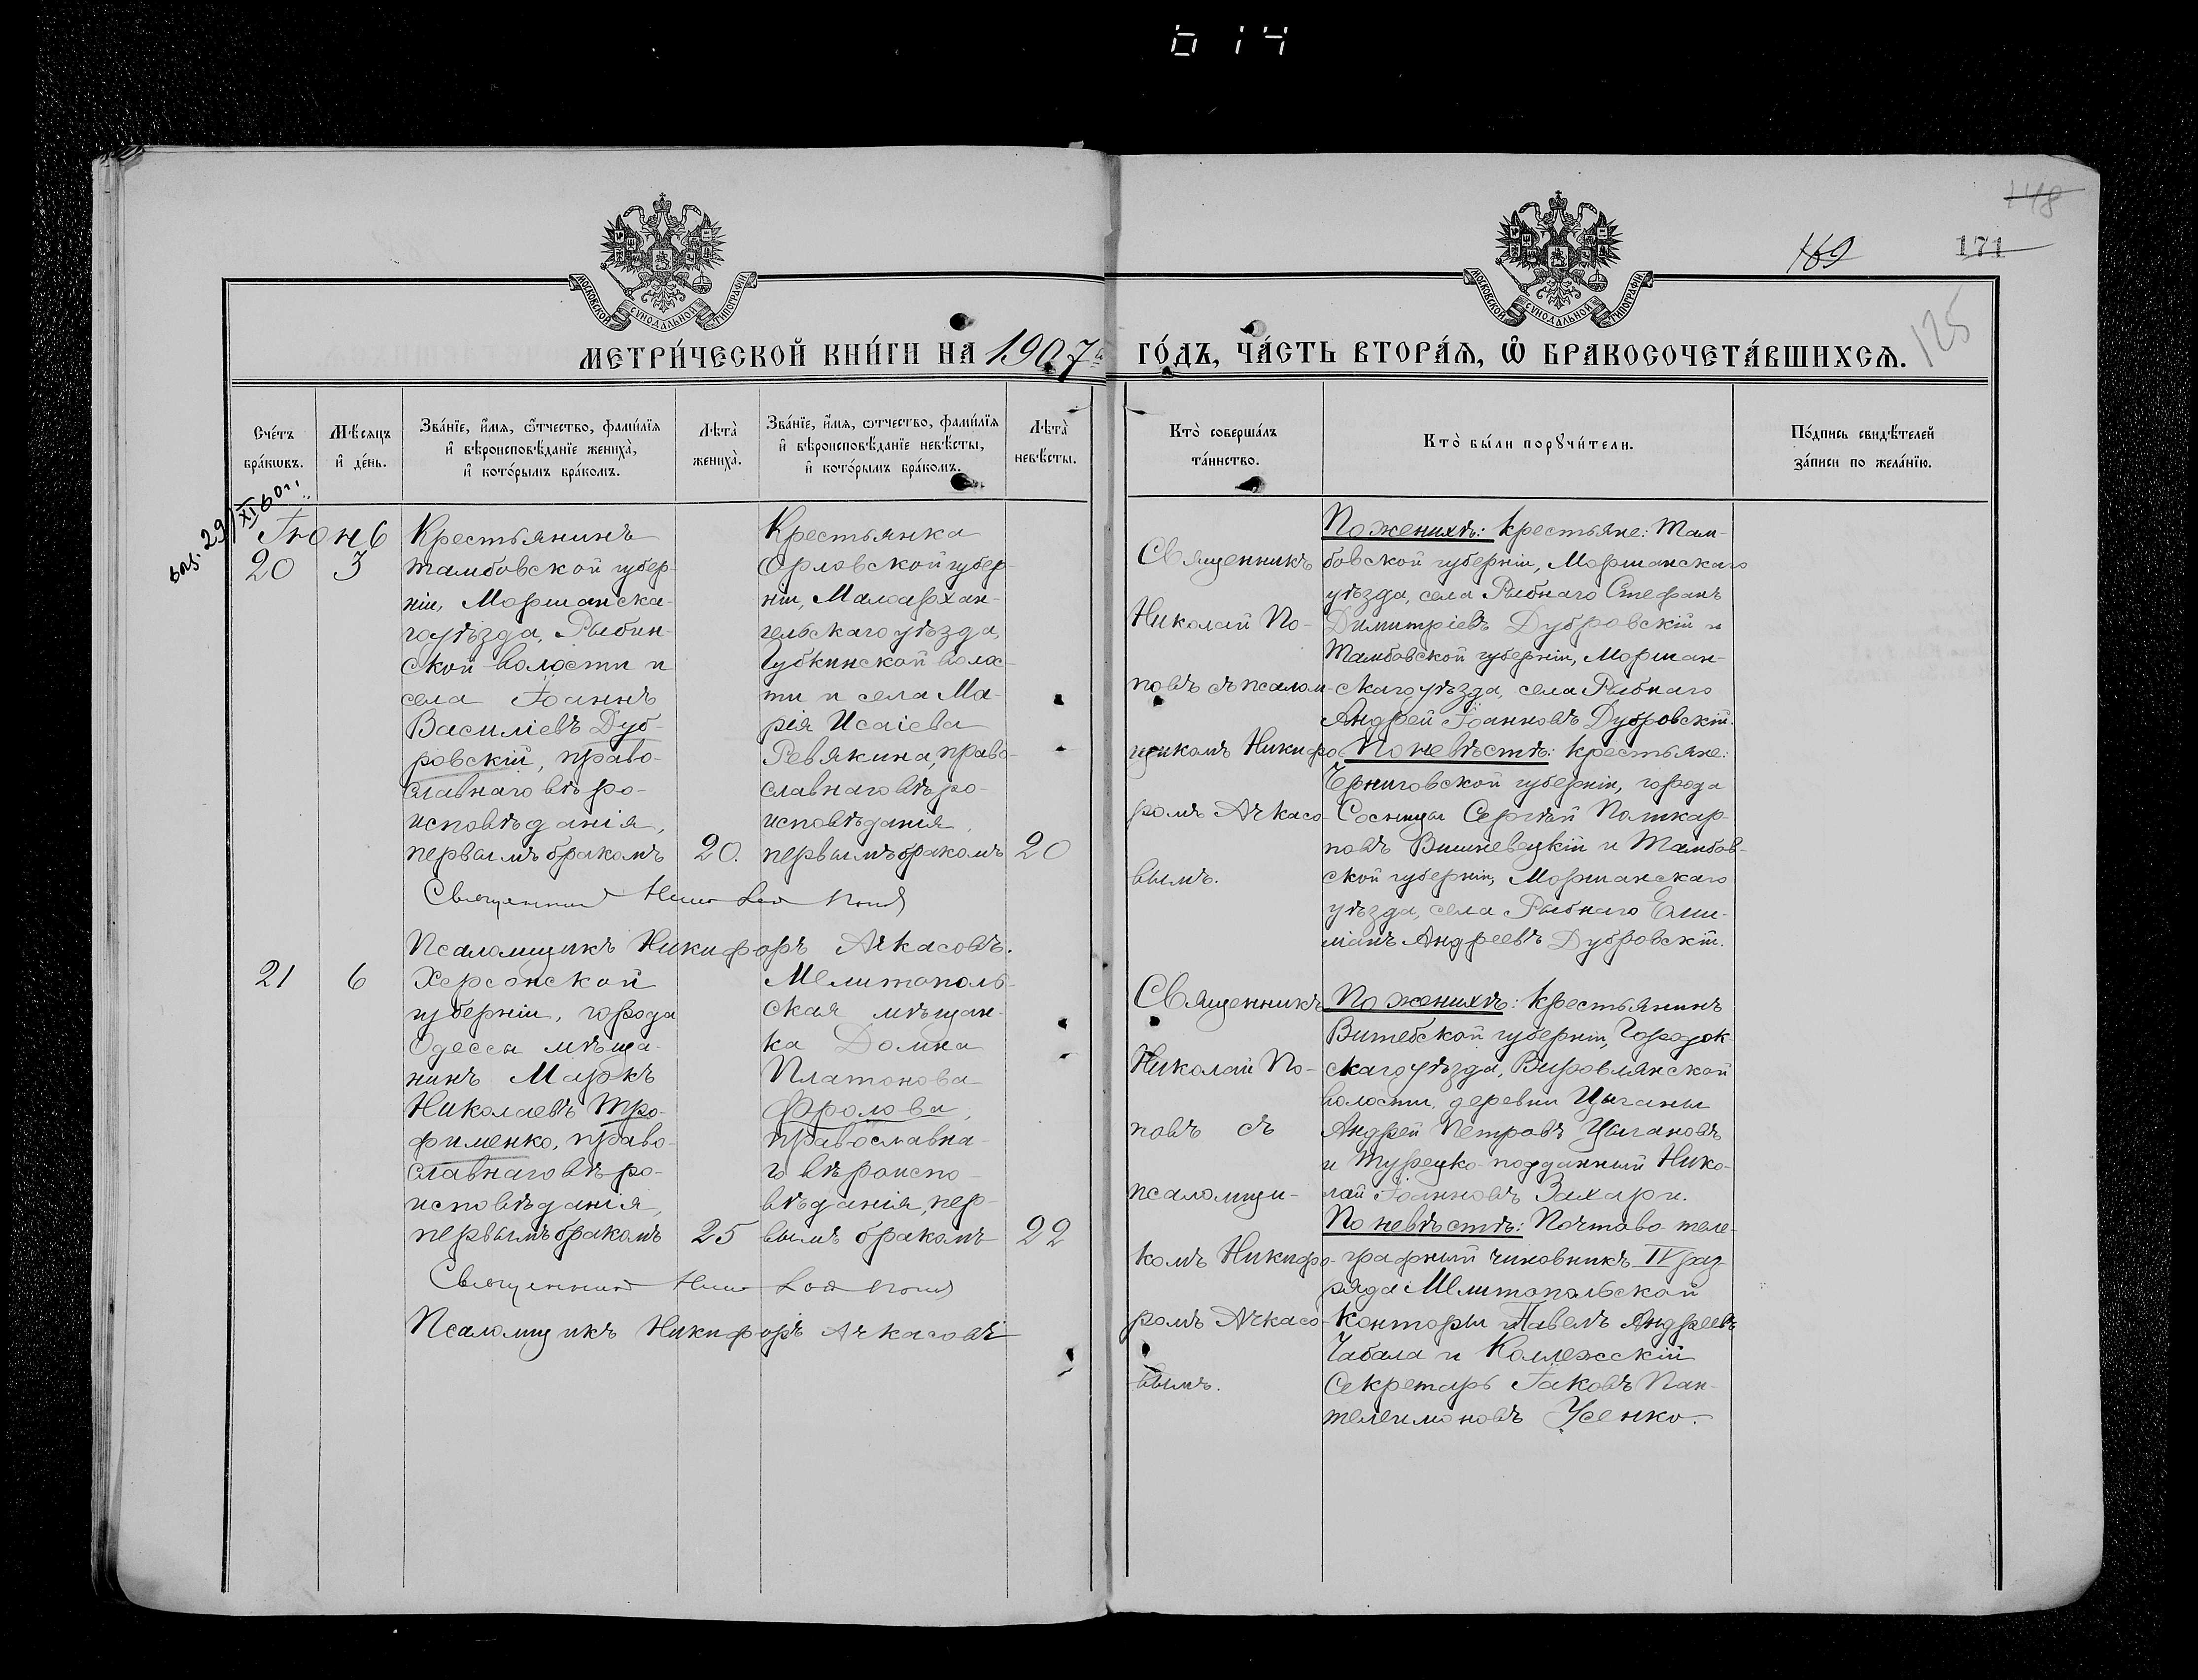 614
148
169
171
125
МОСКОВСКОЙ СѴНОДАЛЬНОЙ ТИПОГРАФІИ
МОСКОВСКОЙ СѴНОДАЛЬНОЙ ТИПОГРАФІИ
МЕТРИ́ЧЕСКОЙ КНИ́ГИ НА 1907й ГО́ДЪ, ЧА́СТЬ ВТОРА́Ѧ, Ѡ҆ БРАКОСОЧЕТА́ВШИХСѦ.
Сче́тъ
бра́кωвъ.
Мѣ́сяцъ
и҆ де́нь.
Зва́нїе, и҆́мя, ѻ҆́тчество, фамилїя
и҆ вѣроисповѣ́данїе жениха̀,
и҆ кото́рымъ бра́комъ.
Лѣта̀
жениха̀.
Зва́нїе, и҆́мя, ѻтчество, фамилїя
и҆ вѣроисповѣ́данїе невѣ́сты,
и҆ кото́рымъ бра́комъ.
Лѣта̀
невѣ́сты.
Кто̀ соверша́лъ
та́инство.
Кто̀ бы́ли порꙋчи́тели.
По́дпись свидѣ́телей
за́писи по жела́нїю.
29/XI 60 г.
Іюнь
20
3
Крестьянинъ
Тамбовской губер-
ніи, Моршанска-
го уѣзда, Рыбин-
ской волости и
села Іоаннъ
Василіевъ Дуб-
ровскій, право-
славнаго вѣро-
исповѣданія,
первымъ бракомъ
20.
Крестьянка
Орловской губер-
ніи, Малоархан-
гельскаго уѣзда,
Губкинской волос-
ти и села Ма-
рія Исаіева
Ревякина, право-
славнаго вѣро-
исповѣданія,
первымъ бракомъ
20
Священникъ Николай Попов
Псаломщикъ Никифоръ Ачкасовъ.
Священникъ
Николай По-
повъ съ псалом-
щикомъ Никифо-
ромъ Ачкасо-
вымъ.
По женихѣ: крестьяне: Там-
бовской губерніи, Моршанскаго
уѣзда, села Рыбнаго Стефанъ
Димитріевъ Дубровскій и
Тамбовской губерніи, Моршан-
скаго уѣзда, села Рыбнаго
Андрей Іоанновъ Дубровскій.
По невѣстѣ: крестьяне:
Черниговской губерніи, города
Сосницы Сергѣй Поликар-
повъ Вишневецкій и Тамбов-
ской губерніи, Моршанскаго
уѣзда, села Рыбнаго Еми-
ліанъ Андреевъ Дубровскій.
21
6
Херсонской
губерніи, города
Одессы мѣща-
нинъ Маркъ
Николаевъ Тро-
фименко, право-
славнаго вѣро-
исповѣданія,
первымъ бракомъ
25
Мелитополь-
ская мѣщан-
ка Домна
Платонова
Фролова,
православна-
го вѣроиспо-
вѣданія, пер-
вымъ бракомъ
22
Священникъ Николай Попов
Псаломщикъ Никифоръ Ачкасовъ
Священникъ
Николай По-
повъ съ
псаломщи-
комъ Никифо-
ромъ Ачкасо-
вымъ.
По женихѣ: крестьянинъ
Витебской губерніи, Городок-
скаго уѣзда, Вировлянской
волости, деревни Цыганы
Андрей Петровъ Цыгановъ
и Турецко-подданный Нико-
лай Іоанновъ Захари.
По невѣстѣ: Почтово-теле-
графный чиновникъ IV раз-
ряда Мелитопольской
Конторы Павелъ Андреевъ
Чабала и Коллежскій
Секретарь Іаковъ Пан-
телеимоновъ Усенко.